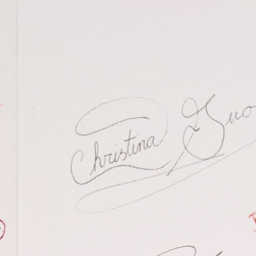 Christina Guo